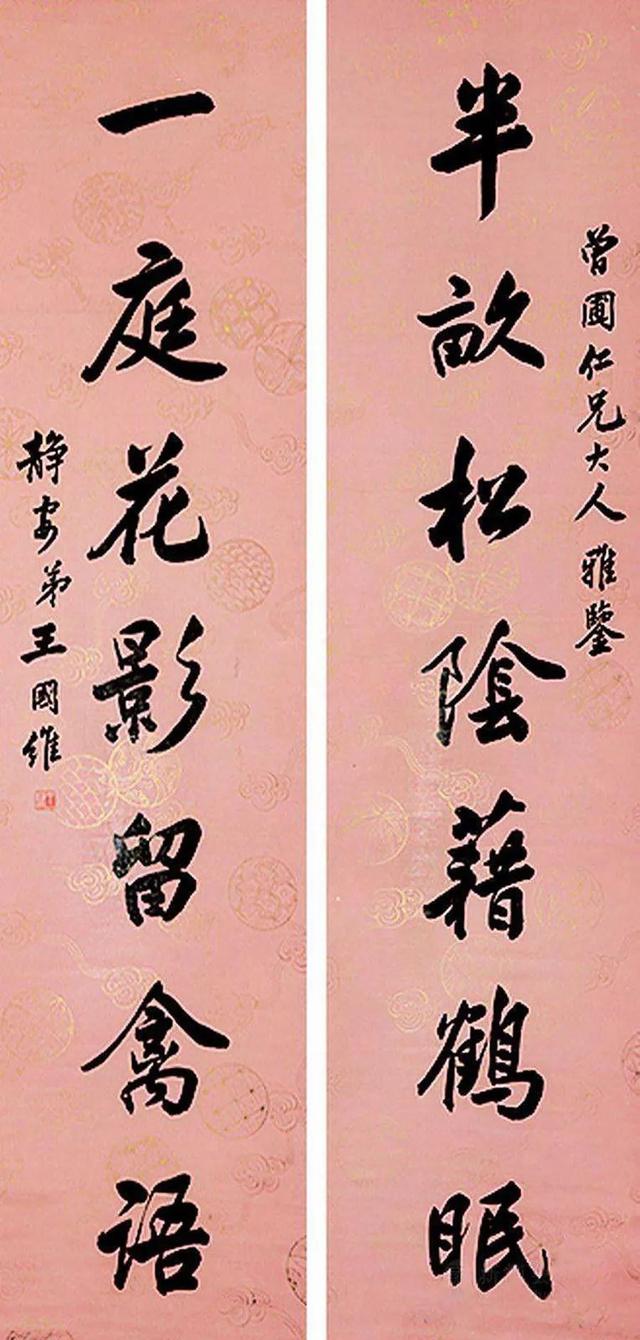 曾圃仁兄大人雅鑒
半畝松陰藉鶴眠
一庭花影留禽語
静安弟王國維